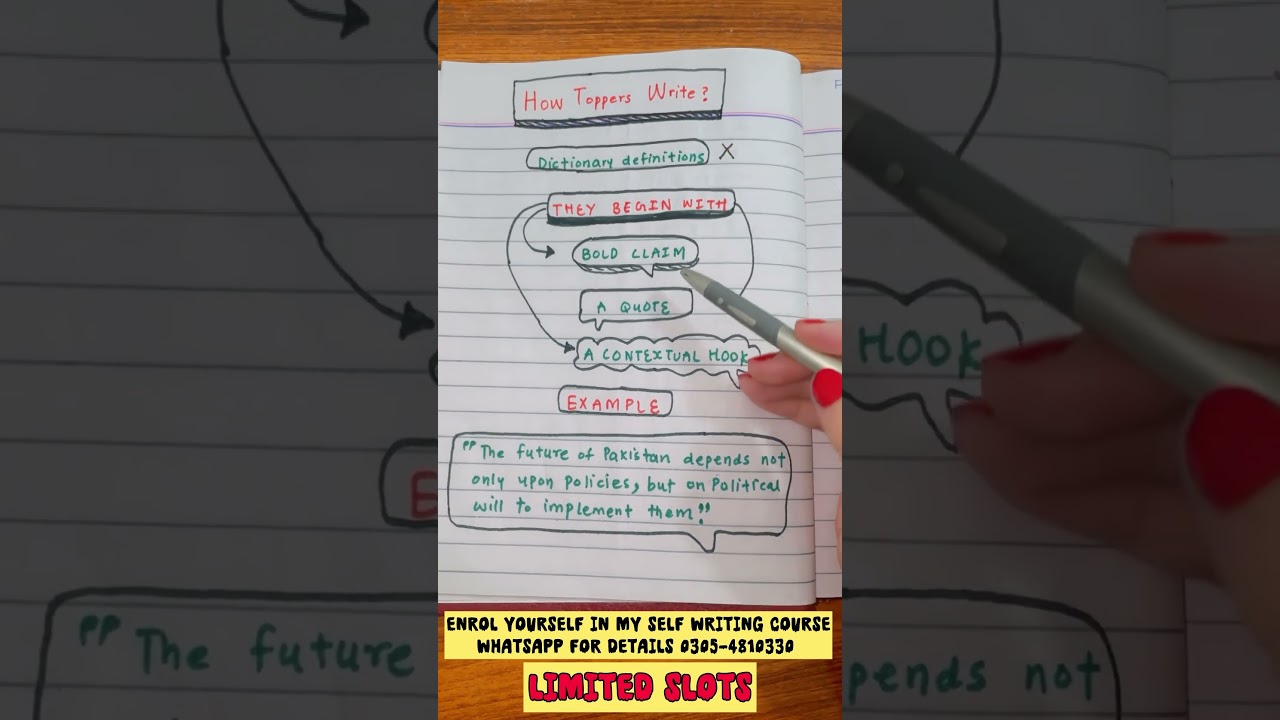 How Toppers Write?
Dictionary definitions X
THEY BEGIN WITH
BOLD CLAIM
A QUOTE
A CONTEXTUAL HOOK
EXAMPLE
"The future of Pakistan depends not
only upon policies, but on Political
will to implement them."
ENROL YOURSELF IN MY SELF WRITING COURSE
WHATSAPP FOR DETAILS 0305-4810330
LIMITED SLOTS
HOOK
"The future
pends not